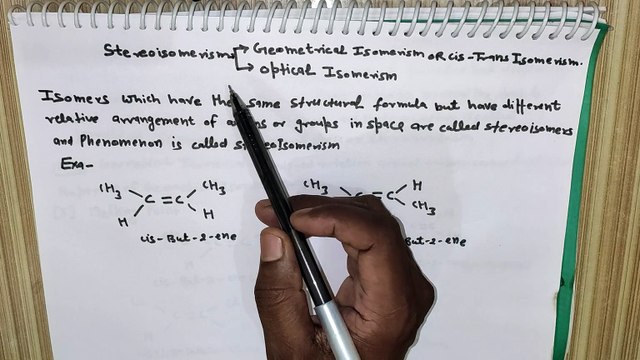 Stereoisomerism → Geometrical Isomerism OR Cis-Trans Isomerism.
→ Optical Isomerism
Isomers which have the same structural formula but have different
relative arrangement of or groups in space are called stereoisomers
and Phenomenon is called Isomerism
Exa-
CH3 CH3 CH3 H
C = C = C
H H CH3
cis-But-2-ene But-2-ene